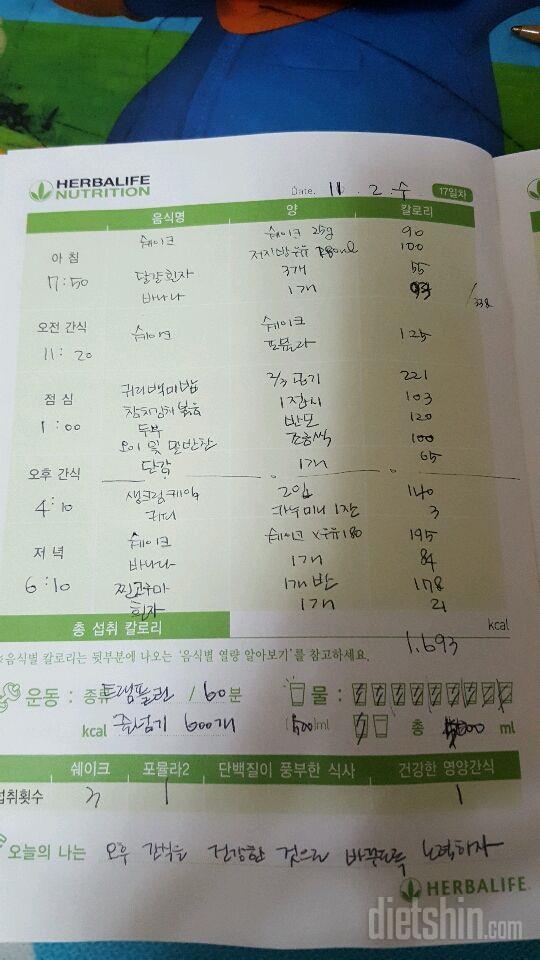 HERBALIFE
NUTRITION
Date. 11 . 2 . 수 17일차
음식명 양 칼로리
아 침 7:50
쉐이크 쉐이크 25g 90
저지방우유 180ml 100
달걀흰자 3개 55
바나나 1개 93
/338
오전 간식 11:20
쉐이크 쉐이크 포뮬라 125
점 심 1:00
귀리백미밥 2/3공기 221
참치김치볶음 1접시 103
두부 반모 120
오이 및 밑반찬 조금씩 100
단감 1개 65
오후 간식 4:10
생크림케익 2입 140
커피 카누미니 1잔 3
저 녁 6:10
쉐이크 쉐이크 x우유180 195
바나나 1개 84
찐고구마 1개 반 178
흰자 1개 21
총 섭취 칼로리 1,693 kcal
※음식별 칼로리는 뒷부분에 나오는 '음식별 열량 알아보기'를 참고하세요.
운동 : 종류 트램폴린 / 60분 물 :
kcal 줄넘기 600개 (500ml 총 ml
쉐이크 포뮬라2 단백질이 풍부한 식사 건강한 영양간식
섭취횟수 3 1 1
오늘의 나는 오후 간식을 건강한 것으로 바꾸도록 노력하자
HERBALIFE
dietshin.com